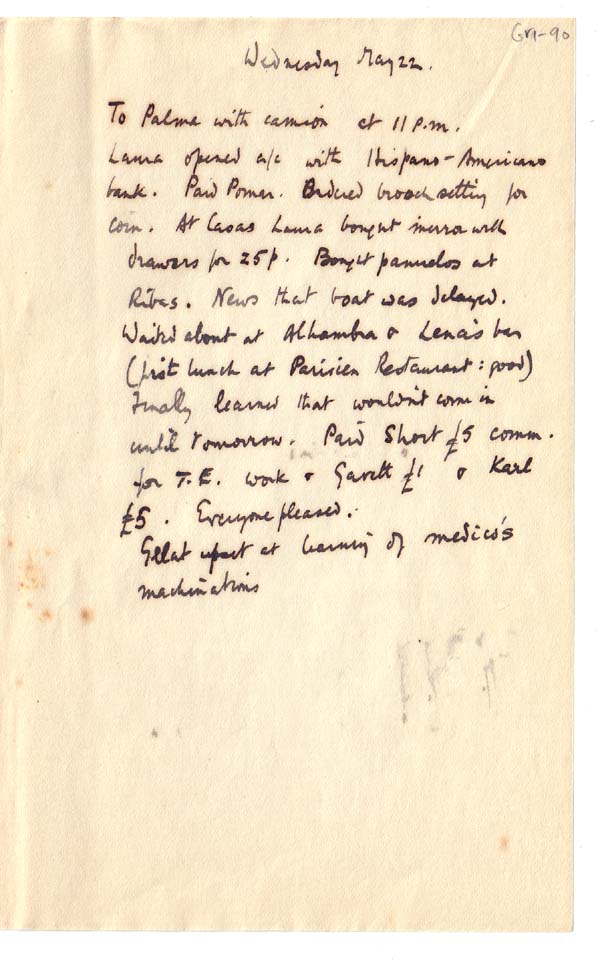 Gr1-90
Wednesday May 22.
To Palma with camión at 11 p.m.
Laura opened a/c with Hispano-Americano
bank. Paid Pomar. Ordered brooch setting for
coin. At Casas Laura bought mirror with
drawers for 25p. Bought panuelos at
Ribas. News that boat was delayed.
Waited about at Alhambra & Lena's bar
(first lunch at Parisien Restaurant: good)
Finally learned that wouldn't come in
until tomorrow. Paid Short £5 comm.
for T.E. work & Gavett £1 & Karl
£5. Everyone pleased.
Gelat upset at learning of medico's
machinations